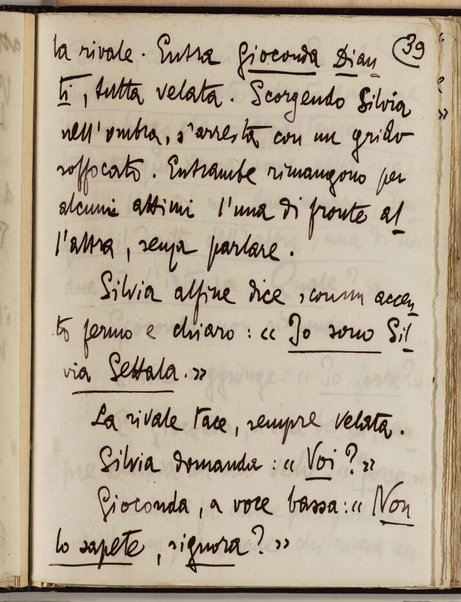 39
la rivale. Entra Gioconda Dian
ti, tutta velata. Scorgendo Silvia
nell'ombra, s'arresta con un grido
soffocato. Entrambe rimangono per
alcuni attimi l'una di fronte al
l'altra, senza parlare.
Silvia alfine dice, con un accen
to fermo e chiaro: «Io sono Sil
via Settala.»
La rivale tace, sempre velata.
Silvia domanda: «Voi?»
Gioconda, a voce bassa: «Non
lo sapete, signora?»